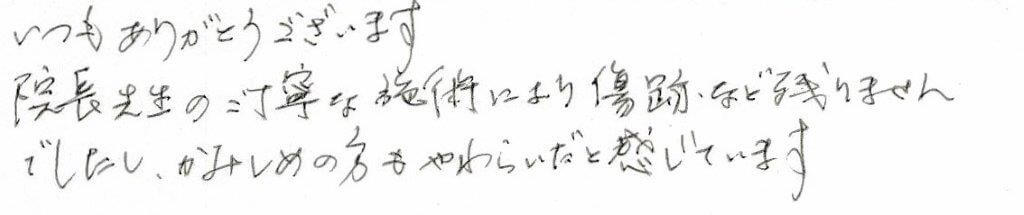 いつもありがとうございます
院長先生のご丁寧な施術により傷跡など残りません
でしたし、かみしめの方もやわらいだと感じています